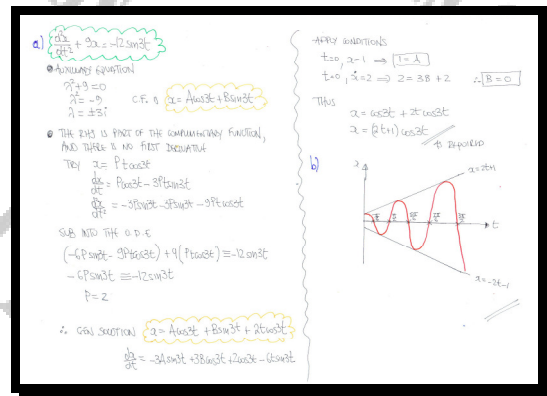 a) d²x/dt² + 9x = -12sin3t
AUXILIARY EQUATION
λ²+9=0
λ²=-9
λ=±3i
C.F. is x=Acos3t+Bsin3t
THE RHS IS PART OF THE COMPLEMENTARY FUNCTION,
AND THERE IS NO FIRST DERIVATIVE
TRY x= Ptcos3t
dx/dt = Pcos3t-3Ptsin3t
d²x/dt² = -3Psin3t-3Psin3t-9Ptcos3t
SUB INTO THE O.D.E
(-6Psin3t-9Ptcos3t)+9(Ptcos3t)≡-12sin3t
-6Psin3t≡-12sin3t
P=2
∴ GEN SOLUTION x=Acos3t+Bsin3t+2tcos3t
dx/dt = -3Asin3t+3Bcos3t+2cos3t-6tsin3t
APPLY CONDITIONS
t=0, x=1 ⇒ 1=A
t=0, ẋ=2 ⇒ 2=3B+2 ∴ B=0
THUS
x=cos3t+2tcos3t
x=(2t+1)cos3t
AS REQUIRED
b)
x
x=2t+1
t
x=-2t-1